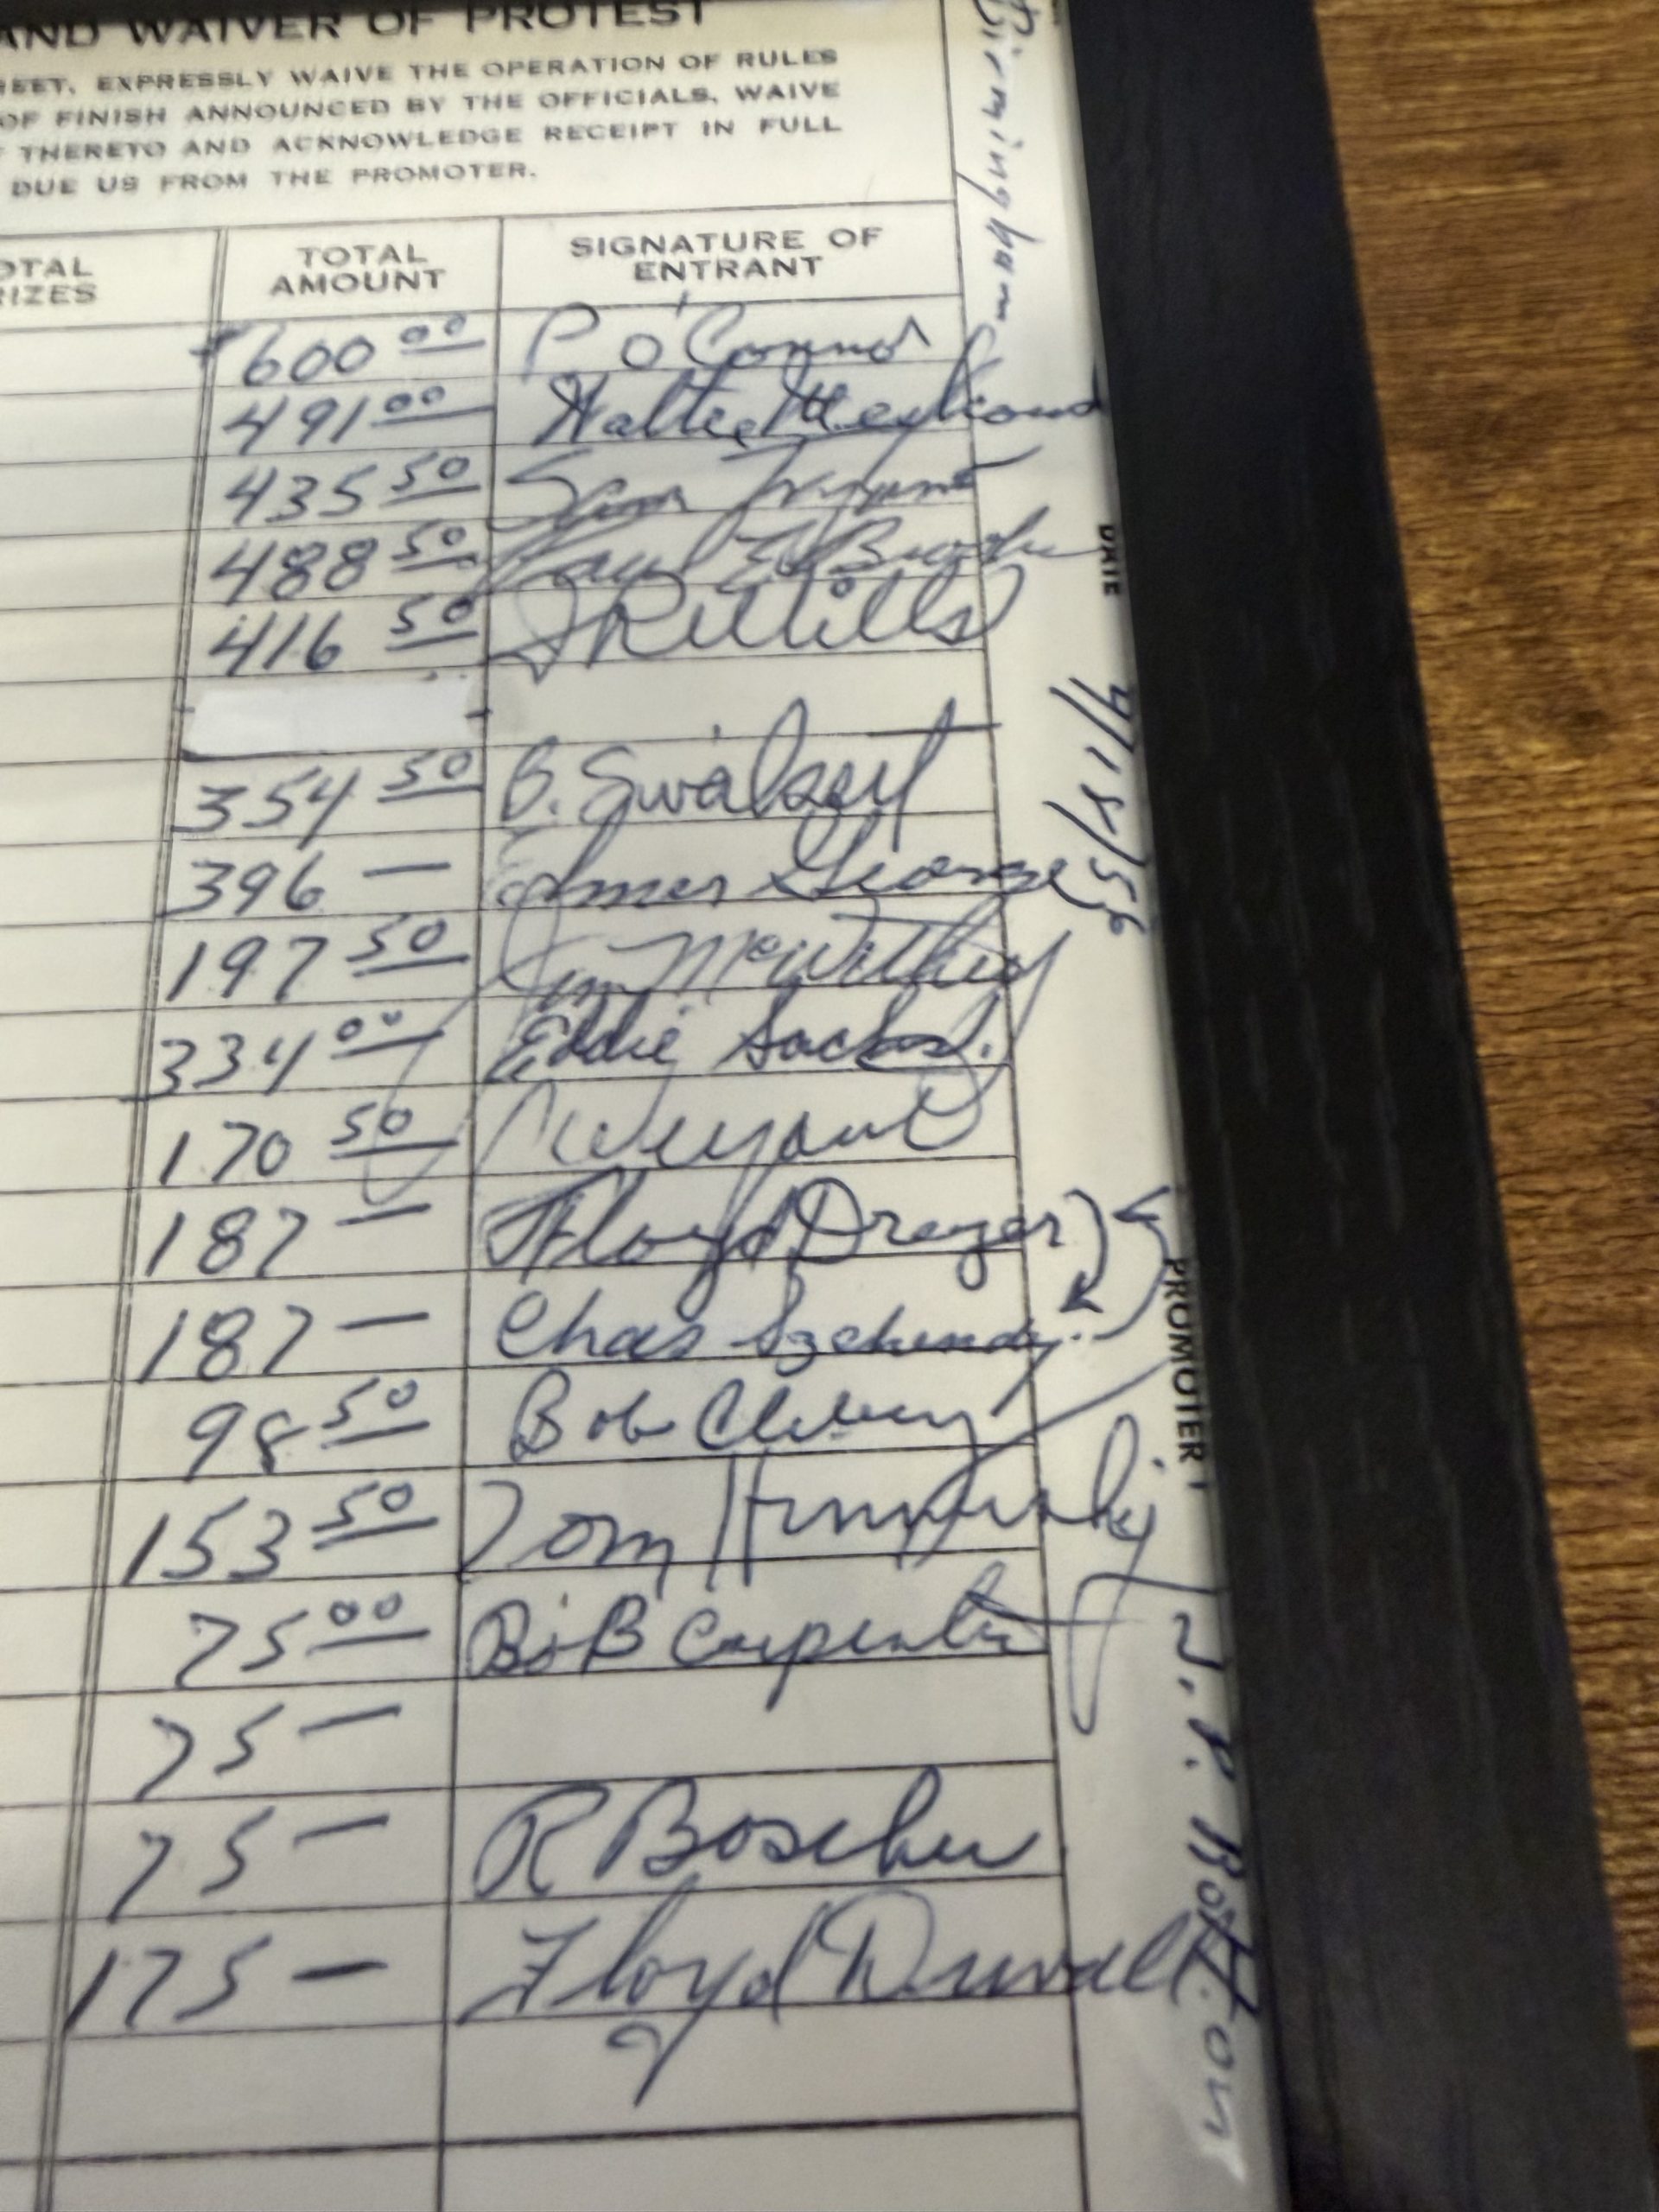 AND WAIVER OF PROTEST
REET, EXPRESSLY WAIVE THE OPERATION OF RULES
OF FINISH ANNOUNCED BY THE OFFICIALS, WAIVE
THERETO AND ACKNOWLEDGE RECEIPT IN FULL
DUE US FROM THE PROMOTER.
OTAL RIZES TOTAL AMOUNT SIGNATURE OF ENTRANT
600 00 P O'Connor
491 00
435 50 Sam
488 50 Earl E
416 50
354 50 B.
396 — Elmer George
197 50 Jim McWithey
334 00 Eddie Sachs
170 50
187 — Floyd Drazer
187 — Chas Szekendy
98 50 Bob Cleberg
153 50 Tom
75 00 BoB Carpenter
75 —
75 — R Boscher
175 — Floyd Duvall
Birmingham
DATE
4/15/56
PROMOTER
J. P. Rotton